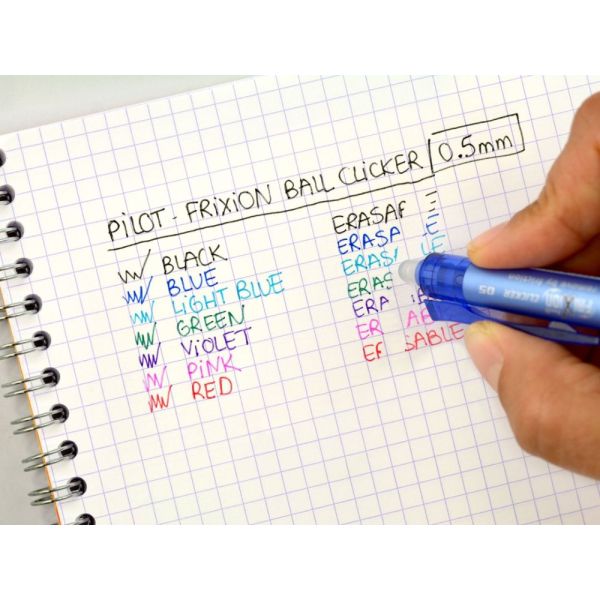 PiLOT - FRiXiON BALL CLiCKER 0.5mm
BLACK ERASA E
BLUE ERASA E
LiGHT BLUE ERAS LE
GREEN ERAS
ViOLET ERA
PiNK ER AB
RED ER SABLE
FriXion CLICKER 05